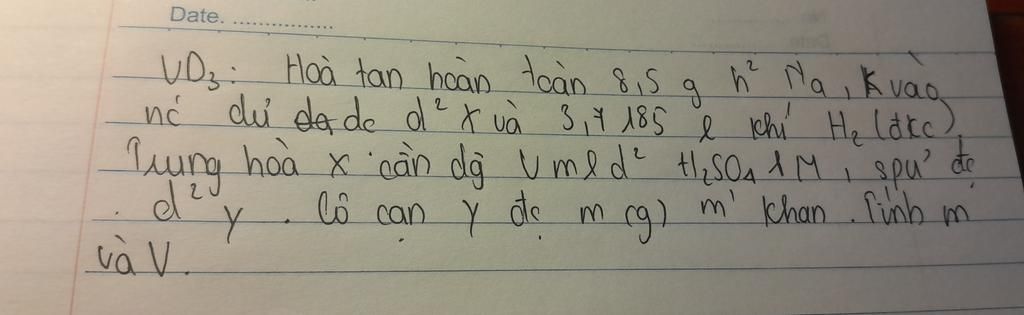 Date. ................
VD₃: Hoà tan hoàn toàn 8,5 g h² Na, K vào
nc dư đc d² X và 3,7185 l khí H₂ (đkc).
Trung hoà X cần dg V ml d² H₂SO₄ 1M, spư đc
d² Y. Cô cạn Y đc m (g) m' khan. Tính m
và V.